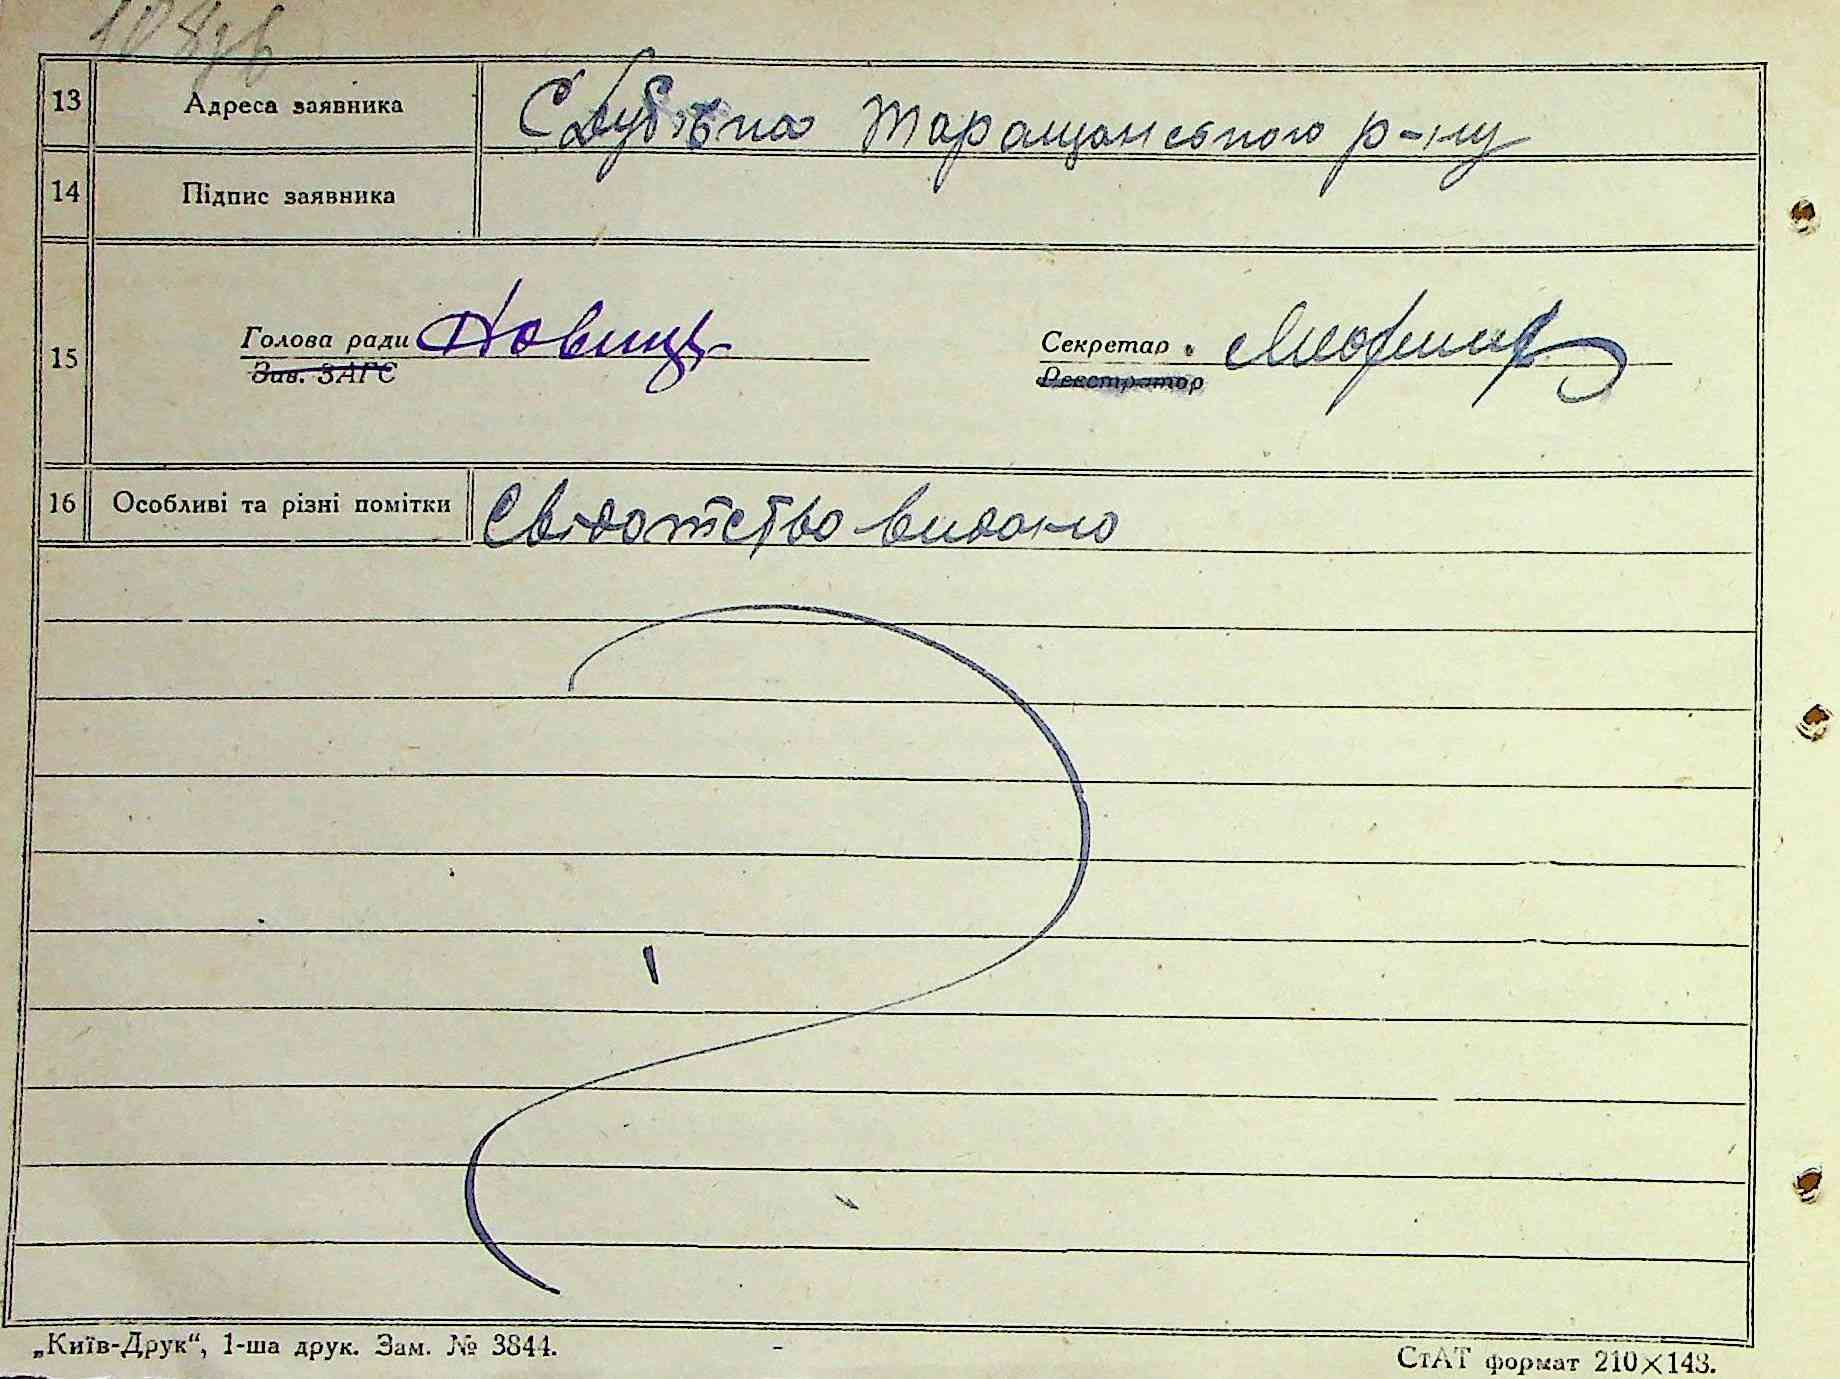 108 зв
13 Адреса заявника С Дубівка Таращанського р-ну
14 Підпис заявника
15 Голова ради Новиц
Зав. ЗАГС
Секретар
Реєстратор
16 Особливі та різні помітки Свідотство видано
„Київ-Друк“, 1-ша друк. Зам. № 3844.
СтАТ формат 210×148.